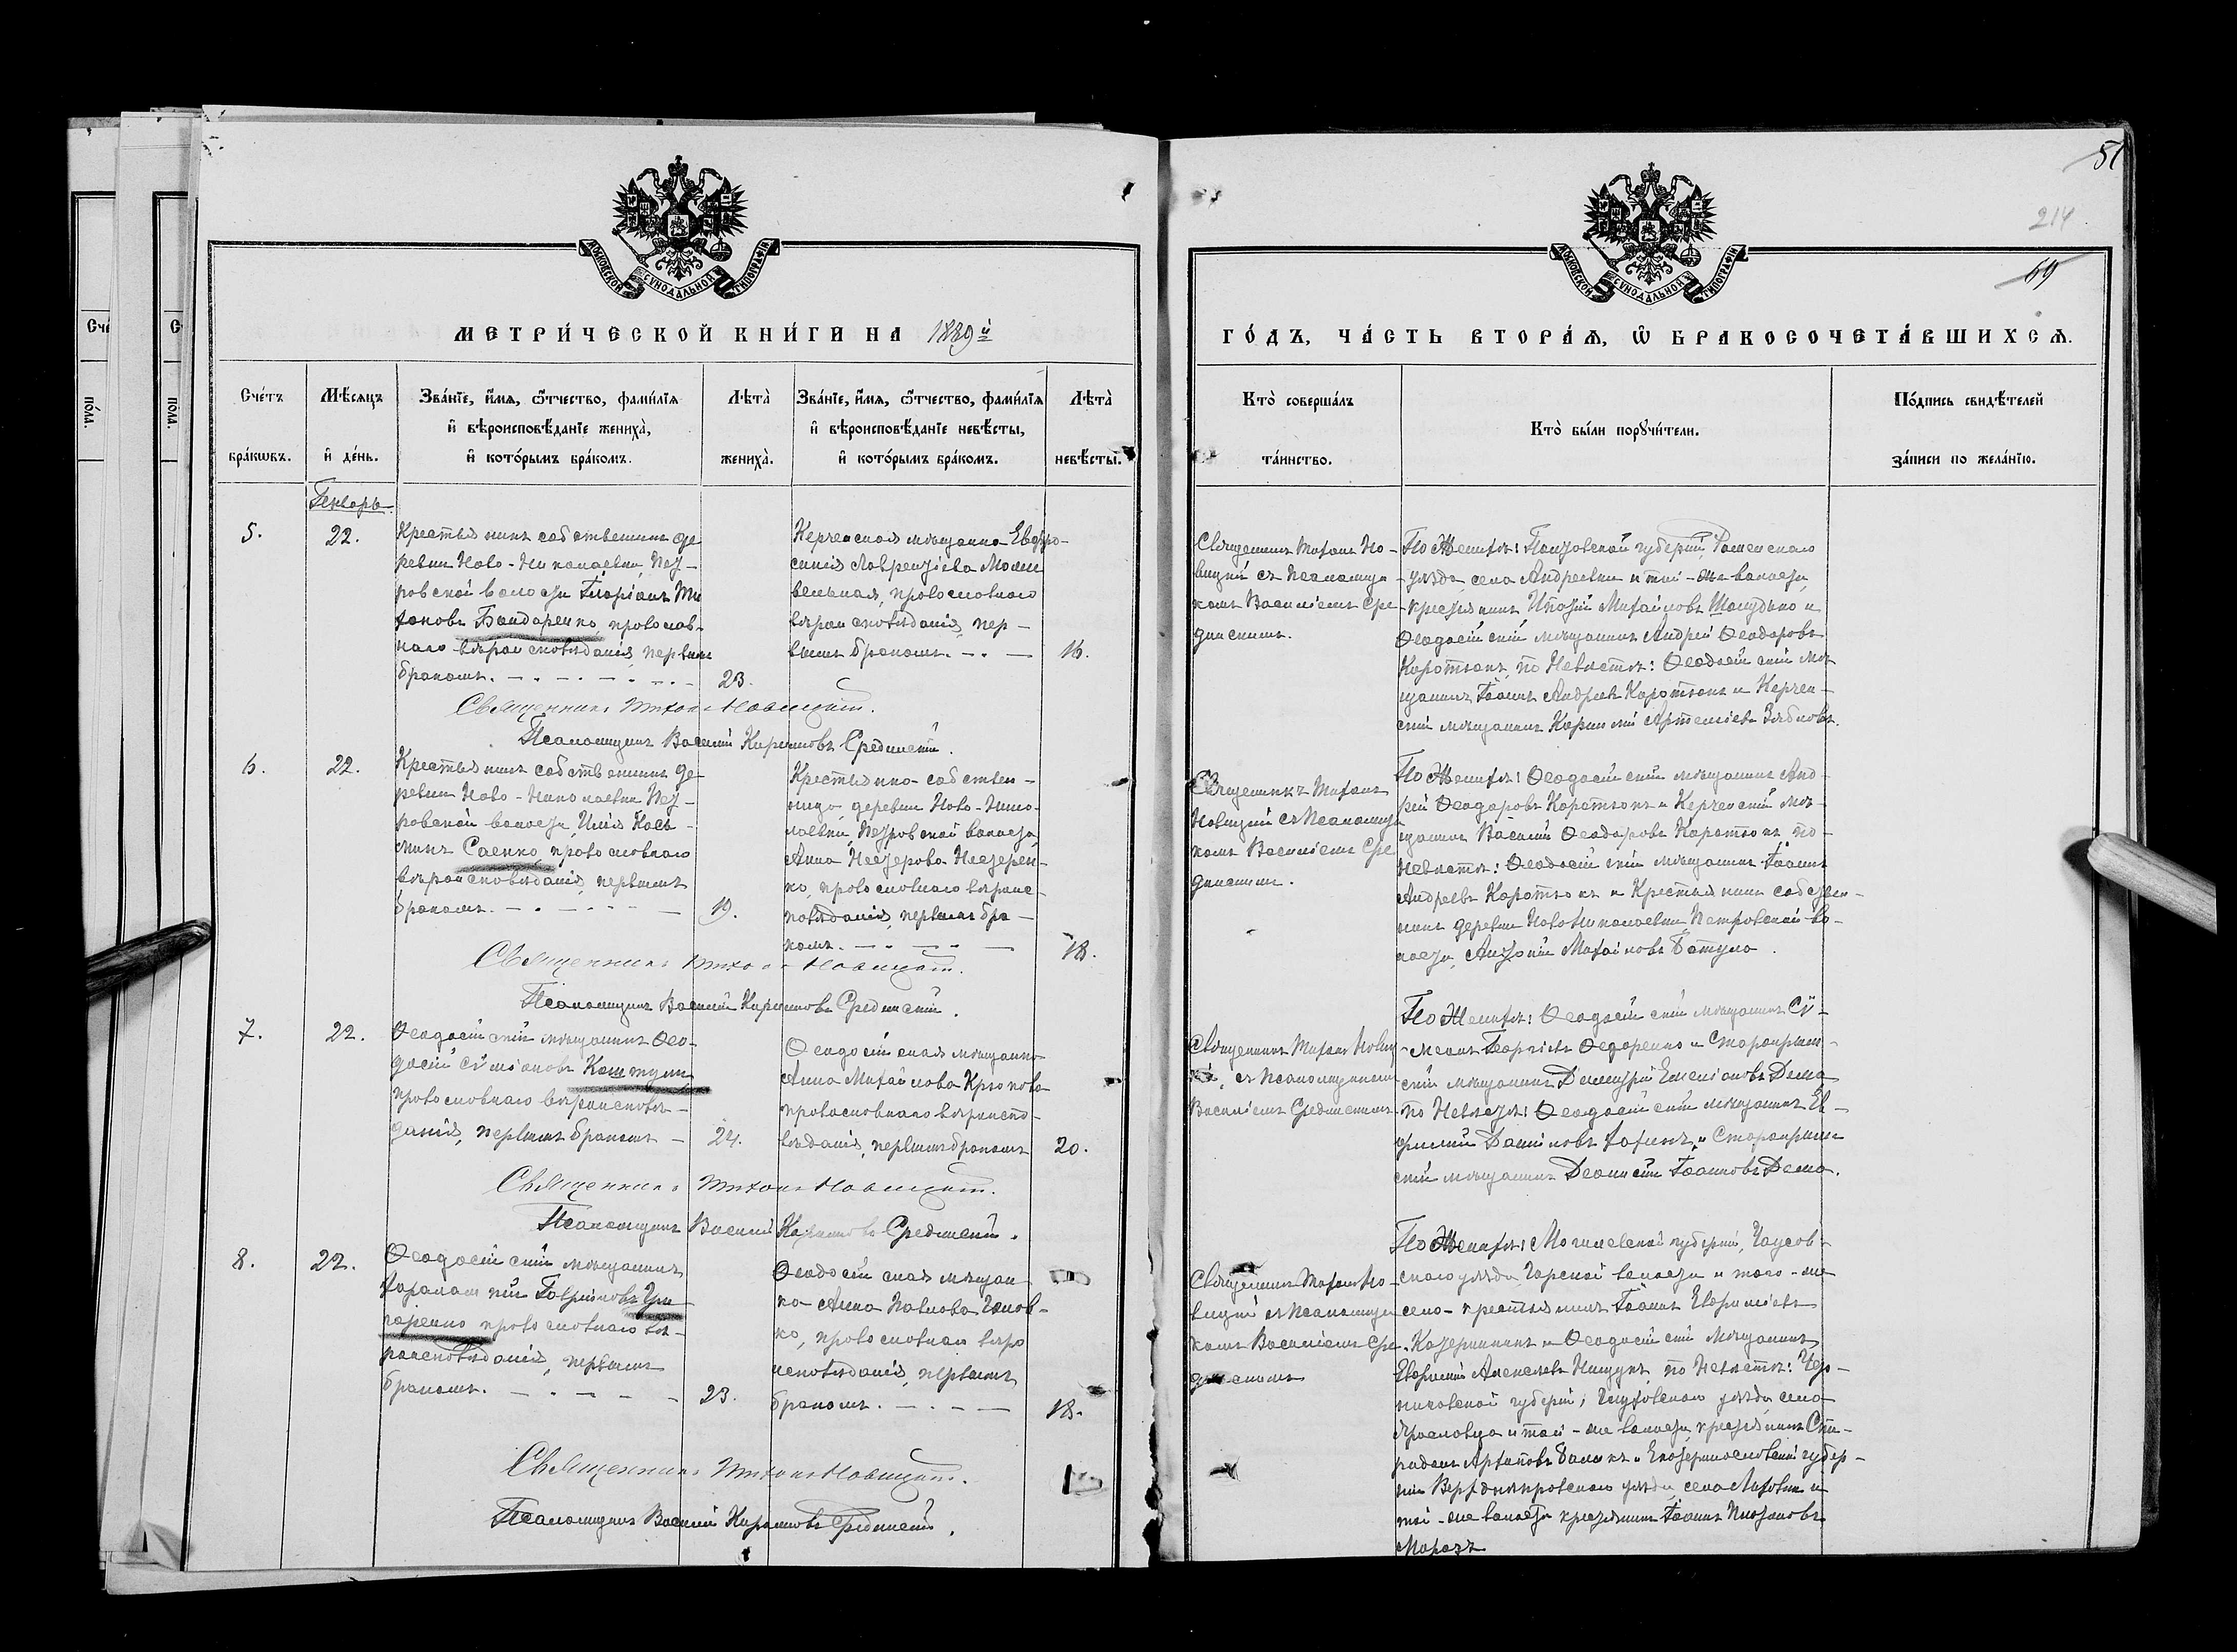 51
214
69
МОСКОВСКОЙ СѴНОДАЛЬНОЙ ТИПОГРАФІИ
МОСКОВСКОЙ СѴНОДАЛЬНОЙ ТИПОГРАФІИ
МЕТРИ́ЧЕСКОЙ КНИ́ГИ НА 1889й
ГО́ДЪ, ЧА́СТЬ ВТОРА́Ѧ, Ѿ БРАКОСОЧЕТА́ВШИХСѦ.
Сче́тъ бра́кѡвъ.
Мѣ́сяцъ и҆ де́нь.
Зва́нїе, и҆́мѧ, ѻ҆́тчество, фами́лїѧ
и҆ вѣроисповѣ́данїе жениха̀,
и҆ кото́рымъ бра́комъ.
Лѣта̀ жениха̀.
Зва́нїе, и҆́мѧ, ѻ҆́тчество, фами́лїѧ
и҆ вѣроисповѣ́данїе невѣ́сты,
и҆ кото́рымъ бра́комъ.
Лѣта̀ невѣ́сты.
Кто̀ соверша́лъ та́инство.
Кто̀ бы́ли порꙋчи́тели.
По́дпись свидѣ́телей за́писи по жела́нїю.
Генварь
5.
22.
Крестьянинъ собственникъ де-
ревни Ново-Николаевки, Пет-
ровской волости
Бондаренко, православ-
наго вѣроисповѣданія, первымъ
бракомъ.
23.
Керченская мѣщанка Евфро-
синія Лаврентіева
православнаго
вѣроисповѣданія, пер-
вымъ бракомъ.
16.
Священникъ Тихонъ Но-
вицкій съ псаломщи-
комъ Василіемъ Сре-
динскимъ.
По Женихѣ: Полтавской губерніи, Роменскаго
уѣзда, села Андреевки и той-же волости,
крестьянинъ Михаиловъ и
Ѳеодосійскій мѣщанинъ Андрей Ѳеодоровъ
Коротконъ, по Невѣстѣ: Ѳеодосійскій мѣ-
щанинъ Іоаннъ Андреевъ Коротконъ и Керчен-
скій мѣщанинъ Артеміевъ Зябловъ.
Священникъ Тихонъ Новицкій.
Псаломщикъ Василій Кирилловъ Срединскій.
6.
22.
Крестьянинъ собственникъ де-
ревни Ново-Николаевки Пет-
ровской волости, Илія Кось-
минъ Саенко, православнаго
вѣроисповѣданія, первымъ
бракомъ.
19.
Крестьянка-собствен-
ница деревни Ново-Нико-
лаевки, Петровской волости
Анна Нестерова Нестерен-
ко, православнаго вѣроис-
повѣданія, первымъ бра-
комъ.
18.
Священникъ Тихонъ
Новицкій съ псаломщи-
комъ Василіемъ Сре-
динскимъ.
По Женихѣ: Ѳеодосійскій мѣщанинъ Анд-
рей Ѳеодоровъ Коротконъ и Керченскій мѣ-
щанинъ Василій Ѳеодоровъ Коротконъ, по
Невѣстѣ: Ѳеодосійскій мѣщанинъ Іоаннъ
Андреевъ Коротконъ и Крестьянинъ собствен-
никъ деревни Новониколаевки Петровской во-
лости, Антоній Михаиловъ
Священникъ Тихонъ Новицкій.
Псаломщикъ Василій Кирилловъ Срединскій.
7.
22.
Ѳеодосійскій мѣщанинъ Ѳео-
досій Сѵмеоновъ
православнаго вѣроисповѣ-
данія, первымъ бракомъ
24.
Ѳеодосійская мѣщанка
Анна Михайлова Крюкова
православнаго вѣроиспо-
вѣданія, первымъ бракомъ
20.
Священникъ Тихонъ Новиц-
кій, съ псаломщикомъ
Василіемъ Срединскимъ.
По Женихѣ: Ѳеодосійскій мѣщанинъ Сѵ-
меонъ Георгіевъ Ѳедоренко и Старокрым-
скій мѣщанинъ Димитрій Емеліановъ Дема
по Невѣстѣ: Ѳеодосійскій мѣщанинъ Ев-
фимій и Старокрым-
скій мѣщанинъ Діонисій Іоанновъ Дема.
Священникъ Тихонъ Новицкій.
Псаломщикъ Василій Кирилловъ Срединскій.
8.
22.
Ѳеодосійскій мѣщанинъ
Харалампій Гавриловъ Гри-
горенко православнаго вѣ-
роисповѣданія, первымъ
бракомъ.
23.
Ѳеодосійская мѣщан-
ка Анна Павлова
православнаго вѣро-
исповѣданія, первымъ
бракомъ.
18.
Священникъ Тихонъ Но-
вицкій съ псаломщи-
комъ Василіемъ Сре-
динскимъ
По Женихѣ: Могилевской губерніи, Чаусов-
скаго уѣзда, Горской волости и того-же
села крестьянинъ Іоаннъ Евфиміевъ
и Ѳеодосійскій мѣщанинъ
Евфимій Алексѣевъ по Невѣстѣ: Чер-
ниговской губерніи, Глуховскаго уѣзда, села
Ярославца и той-же волости, крестьянинъ Спи-
ридонъ и Екатеринославской губер-
ніи Верхднѣпровскаго уѣзда, села Лиховки и
той-же волости крестьянинъ Іоаннъ
Морозъ
Священникъ Тихонъ Новицкій.
Псаломщикъ Василій Кирилловъ Срединскій.